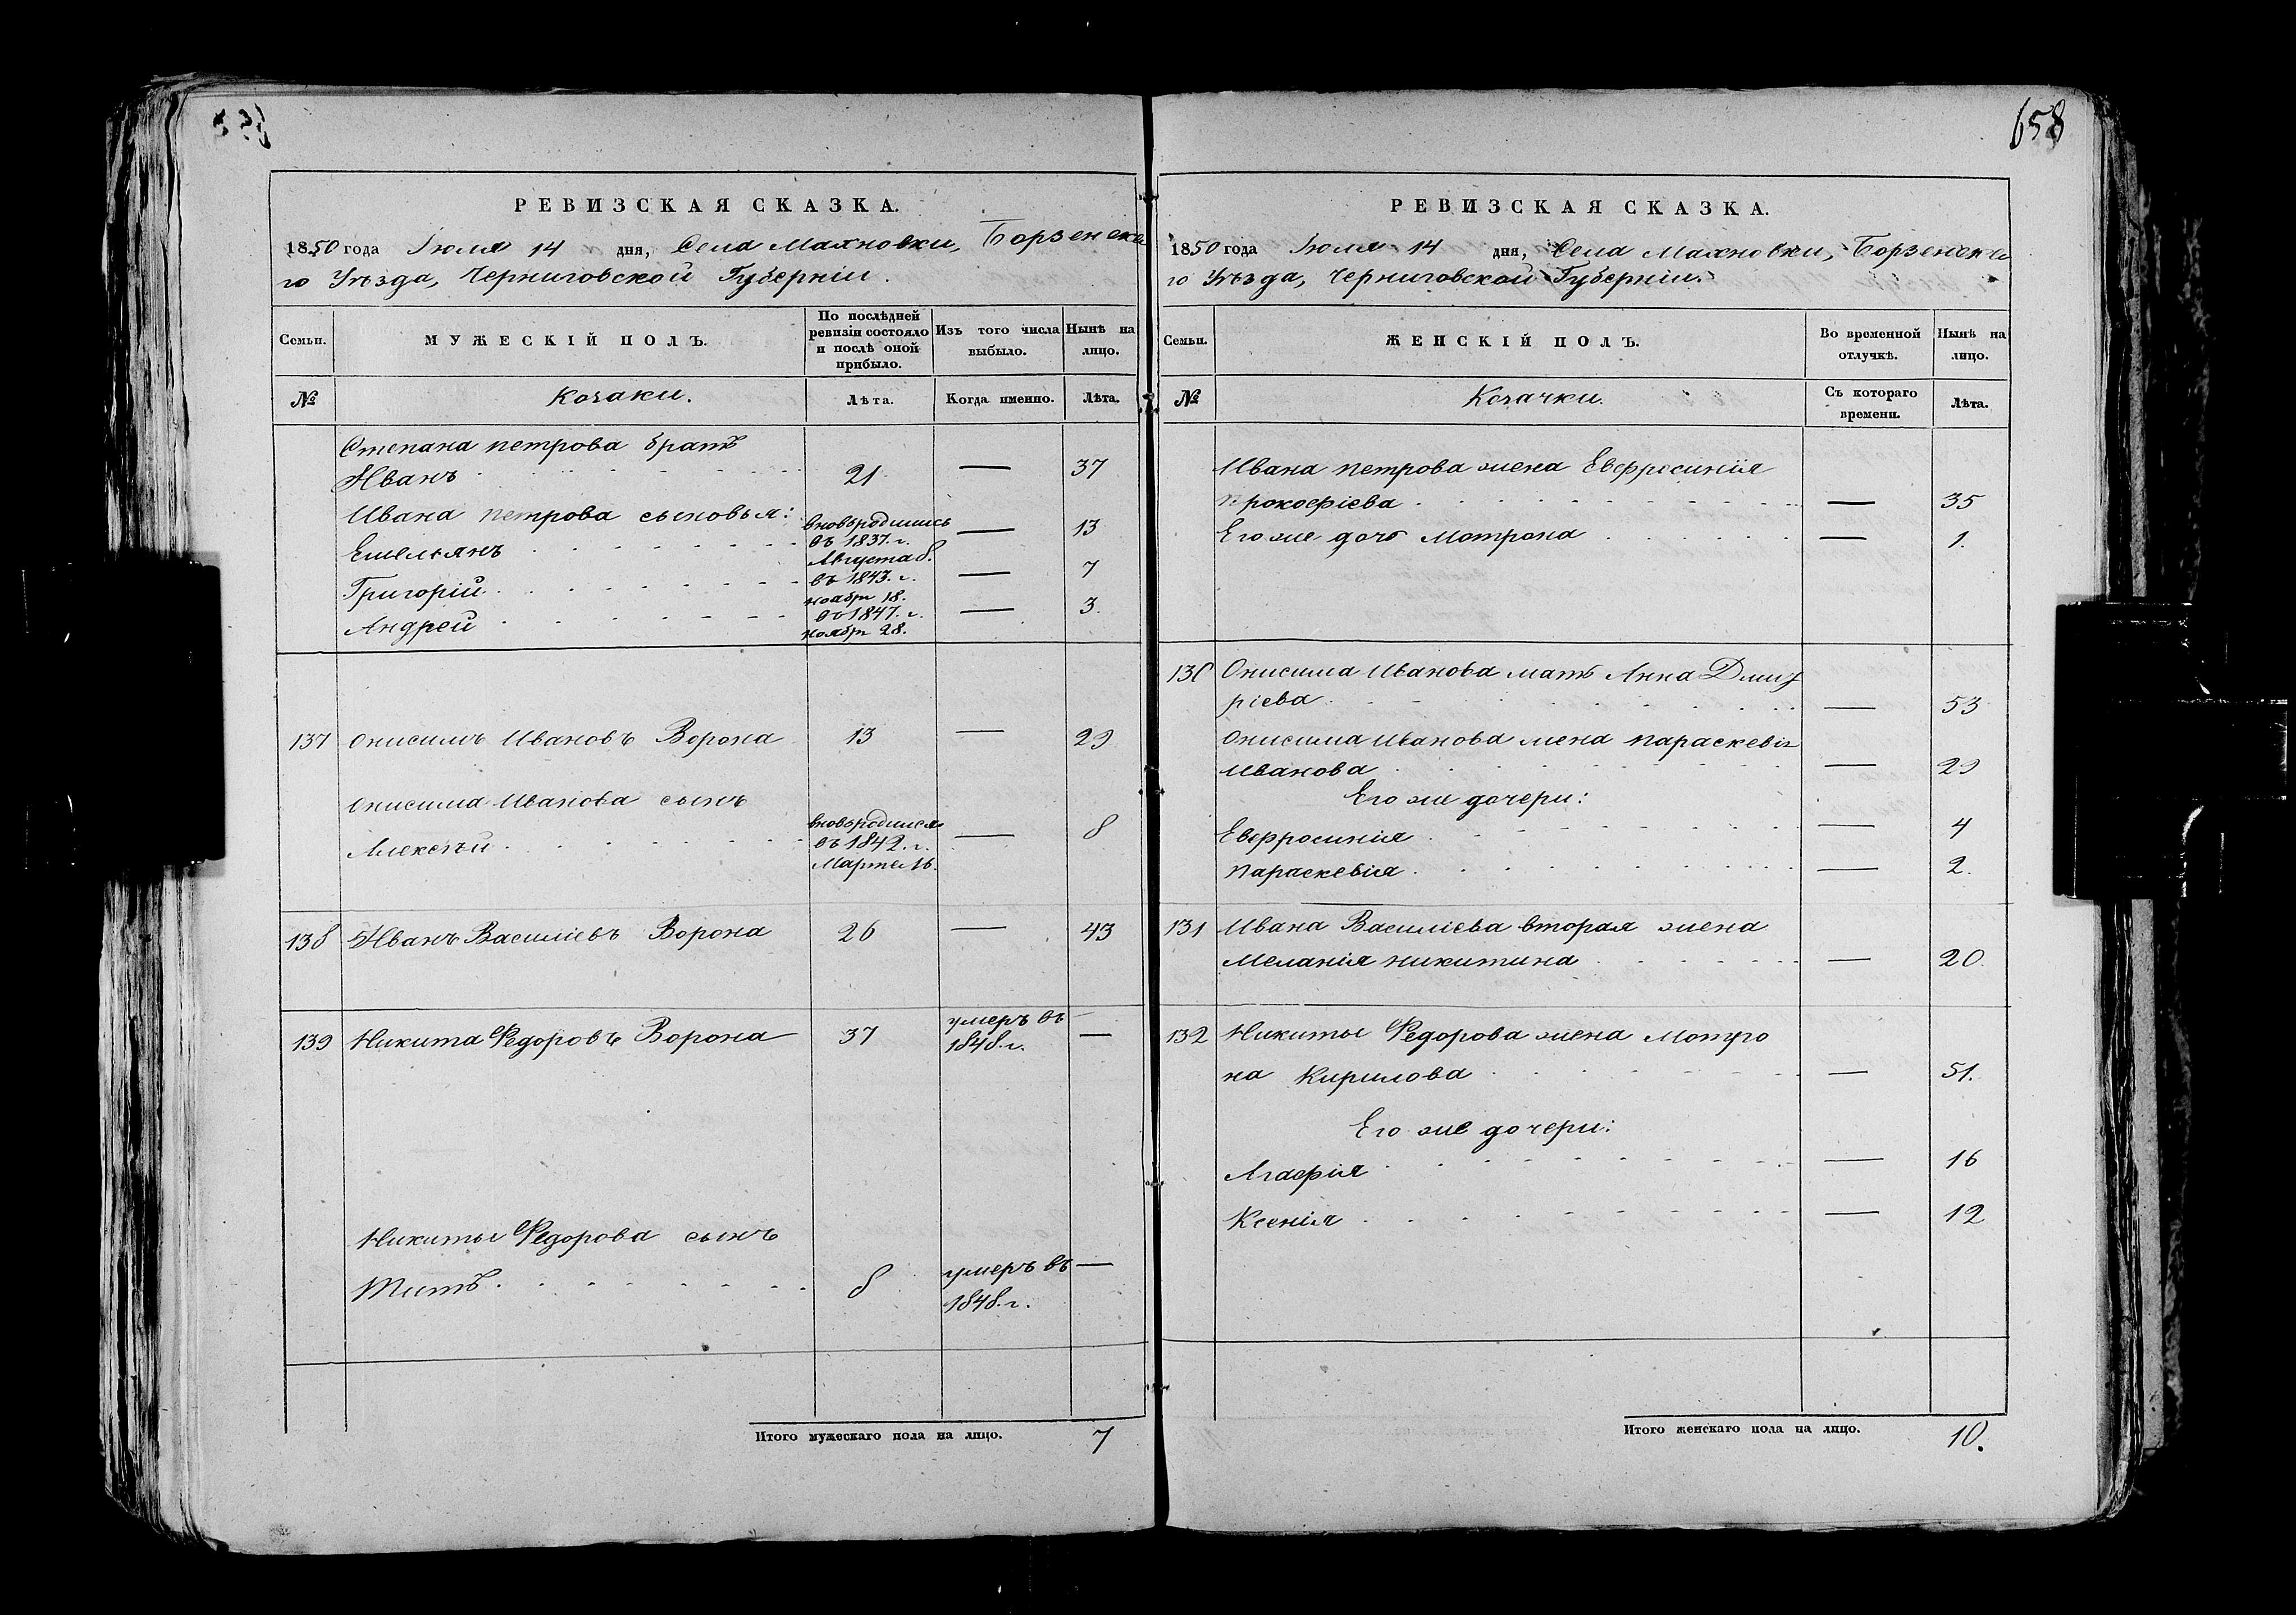 658
РЕВИЗСКАЯ СКАЗКА.
1850 года Іюля 14 дня, Села Махновки, Борзенска
го Уѣзда, Черниговской Губерніи.
Семьи.
МУЖЕСКІЙ ПОЛЪ.
По послѣдней
ревизіи состояло
и послѣ оной
прибыло.
Изъ того числа
выбыло.
Нынѣ на
лицо.
№
Козаки.
Лѣта.
Когда именно.
Лѣта.
Степана Петрова братъ
Иванъ 21 — 37
Ивана Петрова сыновья:
Емельянъ вновьродились въ 1837. г. Августа 8. — 13
Григорій въ 1843. г. Ноабря 18. — 7
Андрей въ 1847. г. Ноября 28. — 3.
137 Онисимъ Ивановъ Ворона 13 — 29
Онисима Иванова сынъ
Алексѣй вновьродился въ 1842. г. Марта 16. — 8
138 Иванъ Василіевъ Ворона 26 — 43
139 Никита Федоровъ Ворона 37 умеръ въ 1848. г. —
Никиты Федорова сынъ
Титъ 8 умеръ въ 1848. г. —
Итого мужескаго пола на лицо. 7
РЕВИЗСКАЯ СКАЗКА.
1850 года Іюля 14 дня, Села Махновки, Борзенска
го Уѣзда, Черниговской Губерніи.
Семьи.
ЖЕНСКІЙ ПОЛЪ.
Во временной
отлучкѣ.
Нынѣ на
лицо.
№
Козачки.
Съ котораго
времени.
Лѣта.
Ивана Петрова жена Евфросинія
Прокофіева — 35
Его же дочь Мотрона — 1.
130 Онисима Иванова мать Анна Дмит
ріева — 53
Онисима Иванова жена Параскевія
Иванова — 29
Его же дочери:
Евфросинія — 4
Параскевія — 2.
131 Ивана Василіева вторая жена
Меланія Никитина — 20.
132 Никиты Федорова жена Мотро
на Кирилова — 51.
Его же дочери:
Агафія — 16
Ксенія — 12
Итого женскаго пола на лицо. 10.